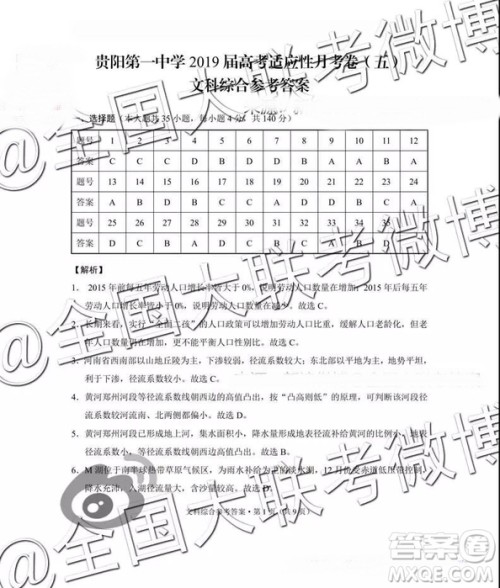 贵阳第一中学 2019 届高考适应性月考卷（五）
文科综合参考答案
一、选择题（本大题共 35 小题，每小题 4 分，共 140 分）
题号 1 2 3 4 5 6 7 8 9 10 11 12
答案 C A C D B D B A A A B
题号 13 14 15 16 17 18 19 20 21 22 23 24
答案 A D D C C D D B A A
题号 25 26 27 28 29 30 31 32 33 34 35
答案 D C B A C D C B A
【解析】
1． 2015 年前每五年劳动人口增长率皆大于 0%，说明劳动人口数量在增加；2015 年后每五年
劳动人口增长率皆小于 0%，说明劳动人口数量在减少。故选 C。
2．长期来看，实行“全面二孩”的人口政策可以增加劳动人口比重，缓解人口老龄化，但老
年人口数量仍在增多，更不能平衡人口性别比。故选 A。
3．河南省西南部以山地丘陵为主，下渗弱，径流系数较大；东北部以平原为主，地势平坦，
利于下渗，径流系数较小。故选 C。
4．黄河郑州河段等径流系数线朝西边的高值凸出，按“凸高则低”的原理，可判断该河段径
流系数比同流南、北两侧都偏小。故选 D。
5．黄河郑州河段已形成地上河，集水面积小，降水量形成地表径流补给黄河的比例小，地表
径流系数较小，等径流系数线朝西边凸出。故选 B。
6．M 湖位于南半球热带草原气候区，为南
降水充沛，入湖径流量大，含沙量较高。故选 D。
文科综合参考答案·第 1 页（共 9 页）
@全国大联考微博
@全国大联考微博
@全国大联考微博
答案圈
MXQE.COM